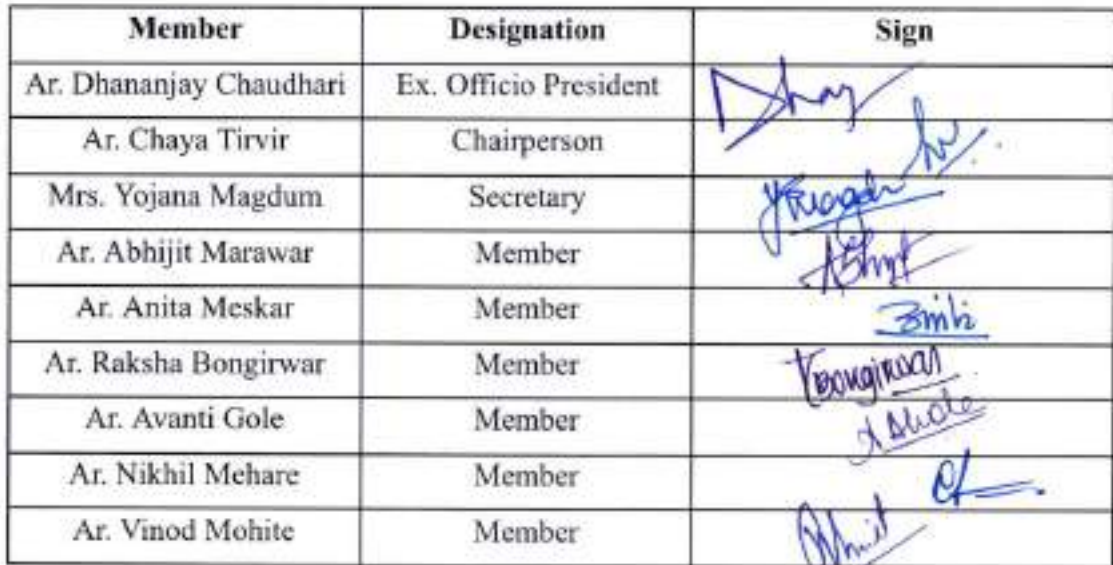 Member Designation Sign
Ar. Dhananjay Chaudhari Ex. Officio President
Ar. Chaya Tirvir Chairperson
Mrs. Yojana Magdum Secretary
Ar. Abhijit Marawar Member
Ar. Anita Meskar Member
Ar. Raksha Bongirwar Member
Ar. Avanti Gole Member
Ar. Nikhil Mehare Member
Ar. Vinod Mohite Member